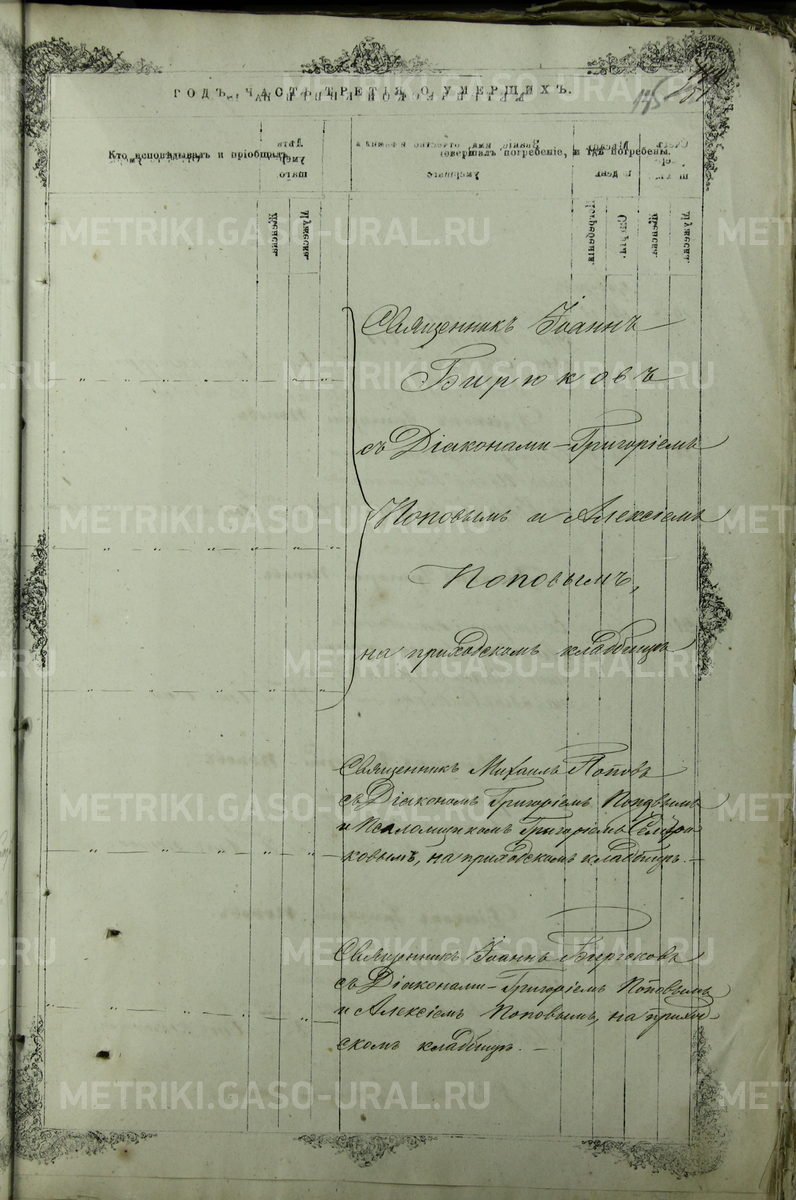 ГОДЪ, ЧАСТЬ ТРЕТІЯ, О УМЕРШИХЪ.
175
Кто исповѣдывалъ и пріобщалъ.
совершалъ погребеніе, и гдѣ погребены.
Священникъ Іоаннъ
Бирюковъ
съ Діаконами Григоріемъ
Поповымъ и Алексіемъ
Поповымъ,
на приходскомъ кладбищѣ
Священникъ Михаилъ Поповъ
съ Діакономъ Григоріемъ Поповымъ
и Псаломщикомъ Григоріемъ
ковымъ, на приходскомъ кладбищѣ. —
Священникъ Іоаннъ Бирюковъ
съ Діаконами Григоріемъ Поповымъ
и Алексіемъ Поповымъ, на приход-
скомъ кладбищѣ. —
METRIKI.GASO-URAL.RU